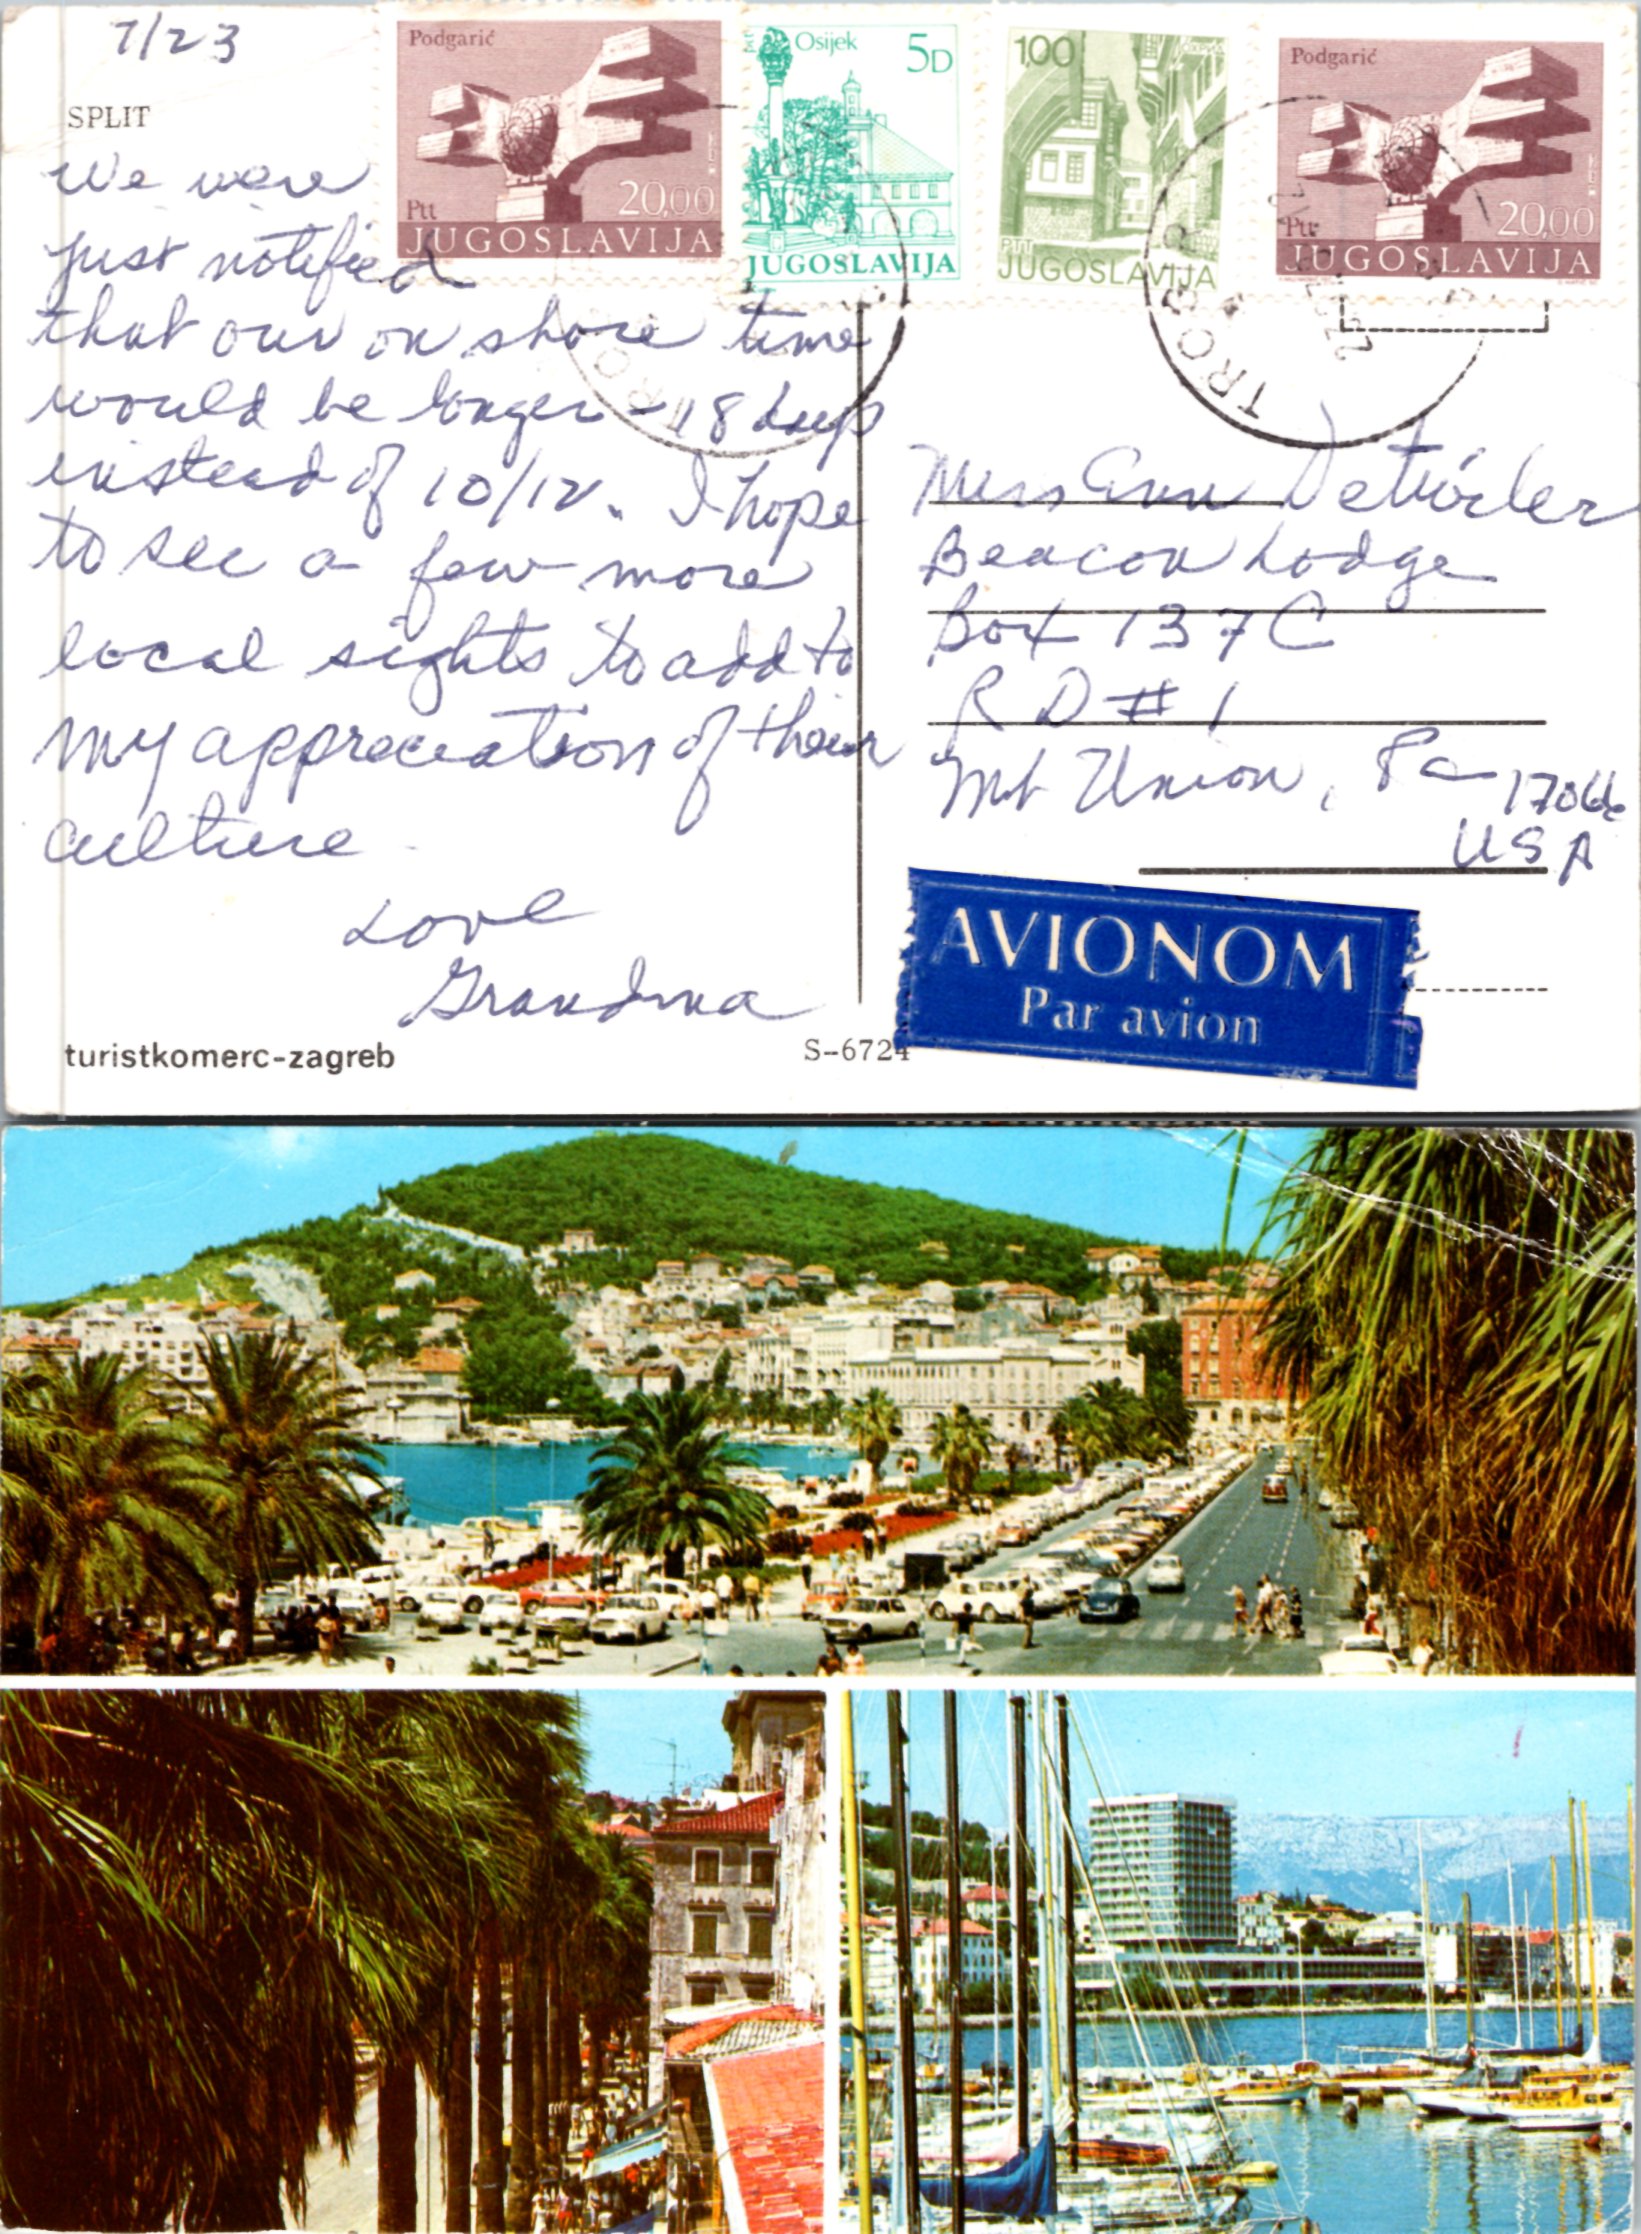 7/23
SPLIT
We were
just notified
that our on shore time
would be longer - 18 days
instead of 10/12. I hope
to see a few more
local sights to add to
my appreciation of their
culture.
Love
Grandma
turistkomerc-zagreb
S-6724
Podgarić
Ptt
20,00
JUGOSLAVIJA
Osijek
5D
JUGOSLAVIJA
1,00
PTT
JUGOSLAVIJA
Podgarić
Ptt
20,00
JUGOSLAVIJA
TROGIR
Miss Ann Detwiler
Beacon Lodge
Box 137C
RD #1
Mt Union, Pa 17066
USA
AVIONOM
Par avion